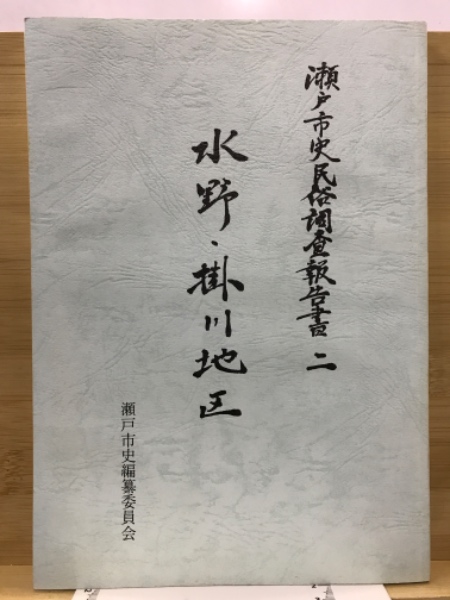 瀬戸市史民俗調査報告書 二
水野・掛川地区
瀬戸市史編纂委員会